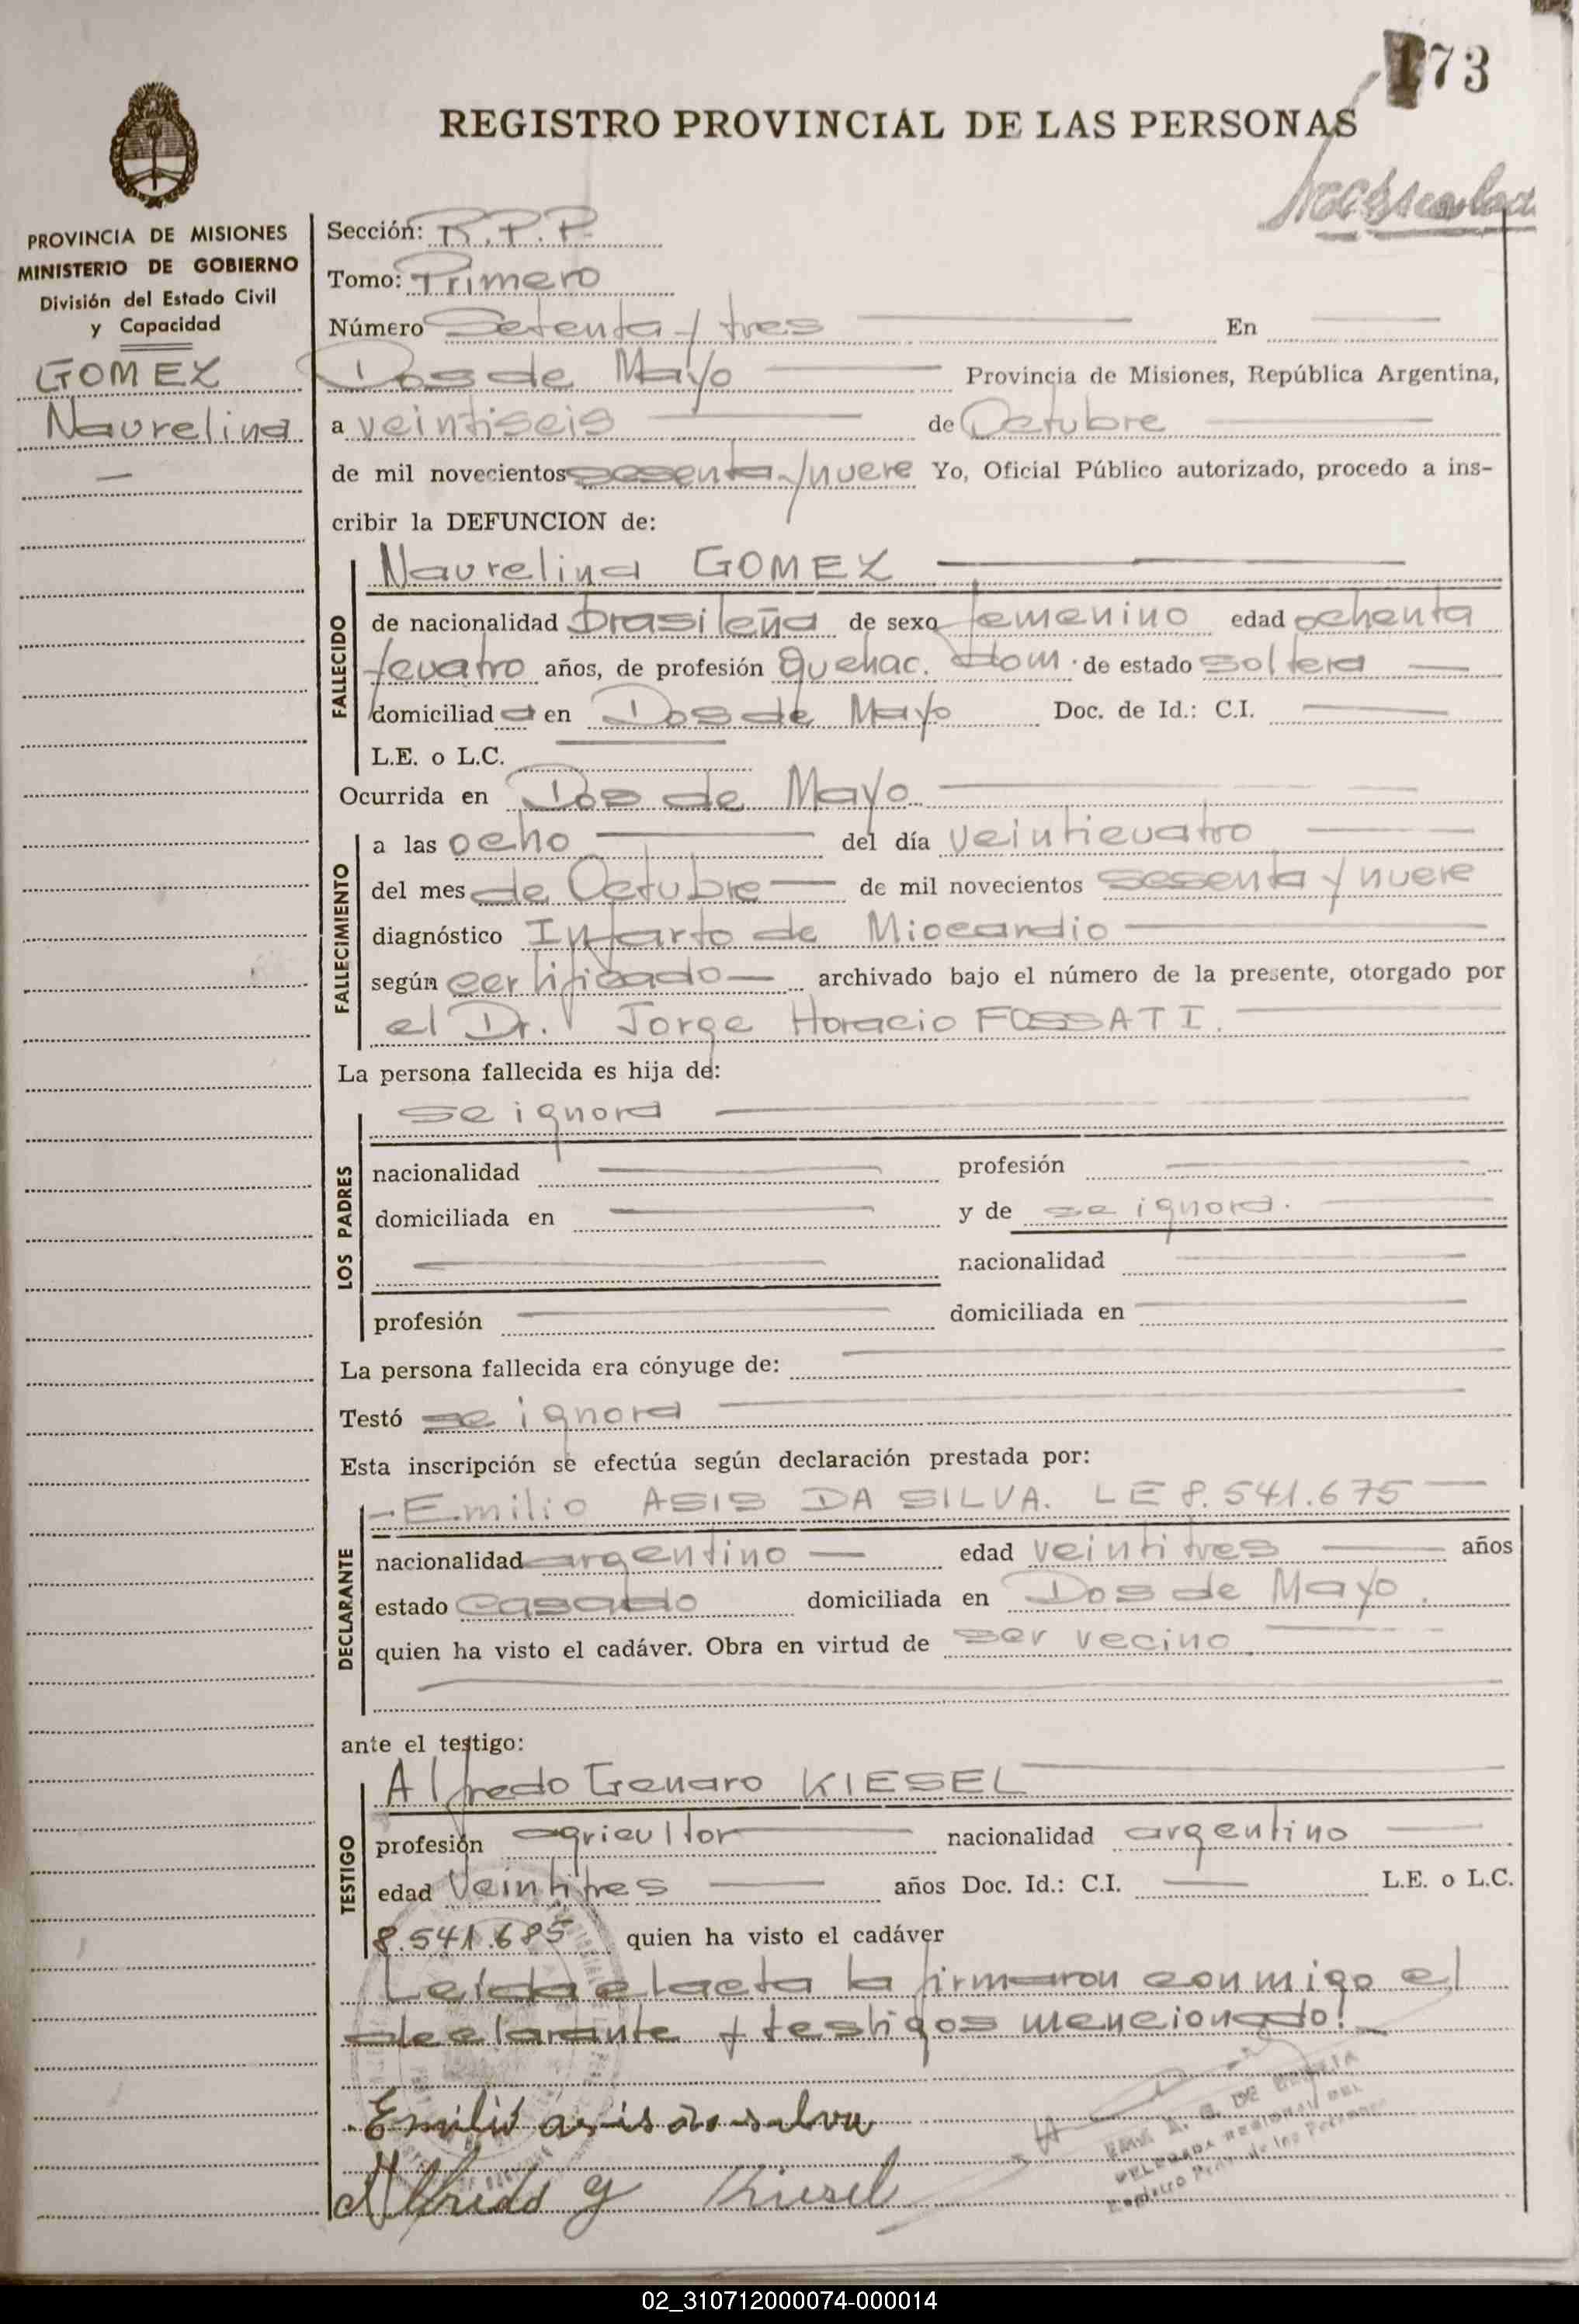 173
REGISTRO PROVINCIAL DE LAS PERSONAS
PROVINCIA DE MISIONES
MINISTERIO DE GOBIERNO
División del Estado Civil
y Capacidad
GOMEZ
Naurelina
Sección: R.P.P.
Tomo: Primero
Número Setenta y tres En
Dos de Mayo Provincia de Misiones, República Argentina,
a veintiseis de Octubre
de mil novecientos sesenta y nueve Yo, Oficial Público autorizado, procedo a ins-
cribir la DEFUNCION de:
FALLECIDO
Naurelina GOMEZ
de nacionalidad brasileña de sexo femenino edad ochenta
y cuatro años, de profesión Quehac. dom. de estado soltera
domiciliad a en Dos de Mayo Doc. de Id.: C.I.
L.E. o L.C.
Ocurrida en Dos de Mayo
FALLECIMIENTO
a las ocho del día veinticuatro
del mes de Octubre de mil novecientos sesenta y nueve
diagnóstico Infarto de Miocardio
según certificado archivado bajo el número de la presente, otorgado por
el Dr. Jorge Horacio FOSSATI.
La persona fallecida es hija de:
LOS PADRES
se ignora
nacionalidad profesión
domiciliada en y de se ignora.
nacionalidad
profesión domiciliada en
La persona fallecida era cónyuge de:
Testó se ignora
Esta inscripción se efectúa según declaración prestada por:
DECLARANTE
- Emilio ASIS DA SILVA. LE 8.541.675
nacionalidad argentino edad veintitres años
estado Casado domiciliada en Dos de Mayo.
quien ha visto el cadáver. Obra en virtud de ser vecino
ante el testigo:
TESTIGO
Alfredo Genaro KIESEL
profesión agricultor nacionalidad argentino
edad Veintitres años Doc. Id.: C.I. L.E. o L.C.
8.541.685 quien ha visto el cadáver
Leida el acta la firmaron conmigo el
declarante y testigos mencionado!
Emilio asis da silva
Alfredo G Kiesel
A. G. DE
DELEGADA REGIONAL DEL
Registro Prov. de las Personas
02_310712000074-000014